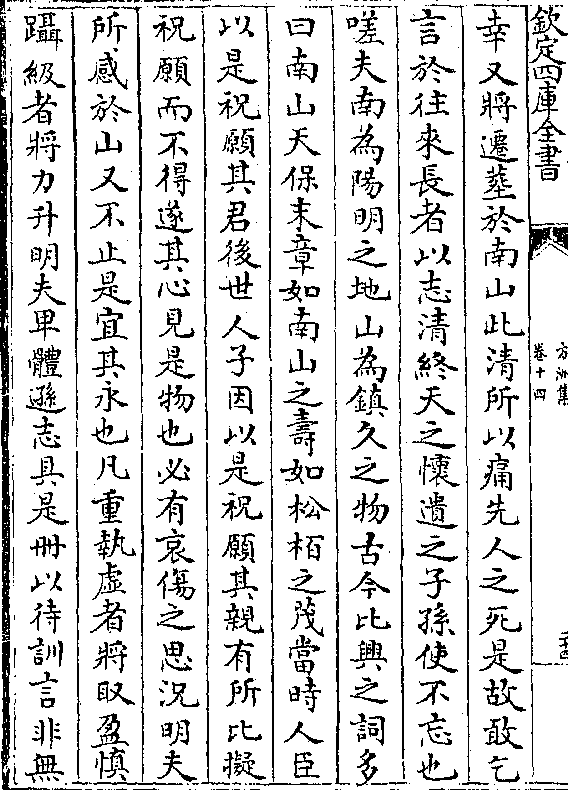 幸又將遷塟於南山此清所以痛先人之死是故敢乞
言於往來長者以志清終天之懷遺之子孫使不忘也
嗟夫南為陽明之地山為鎮久之物古今比興之詞多
曰南山天保末章如南山之壽如松栢之茂當時人臣
以是祝願其君後世人子因以是祝願其親有所比擬
祝願而不得遂其心見是物也必有哀傷之思況明夫
所感於山又不止是宜其永也凡重執虛者將取盈慎
躡級者將力升明夫卑體遜志具是册以待訓言非無
欽定四庫全書
方洲集
卷十四